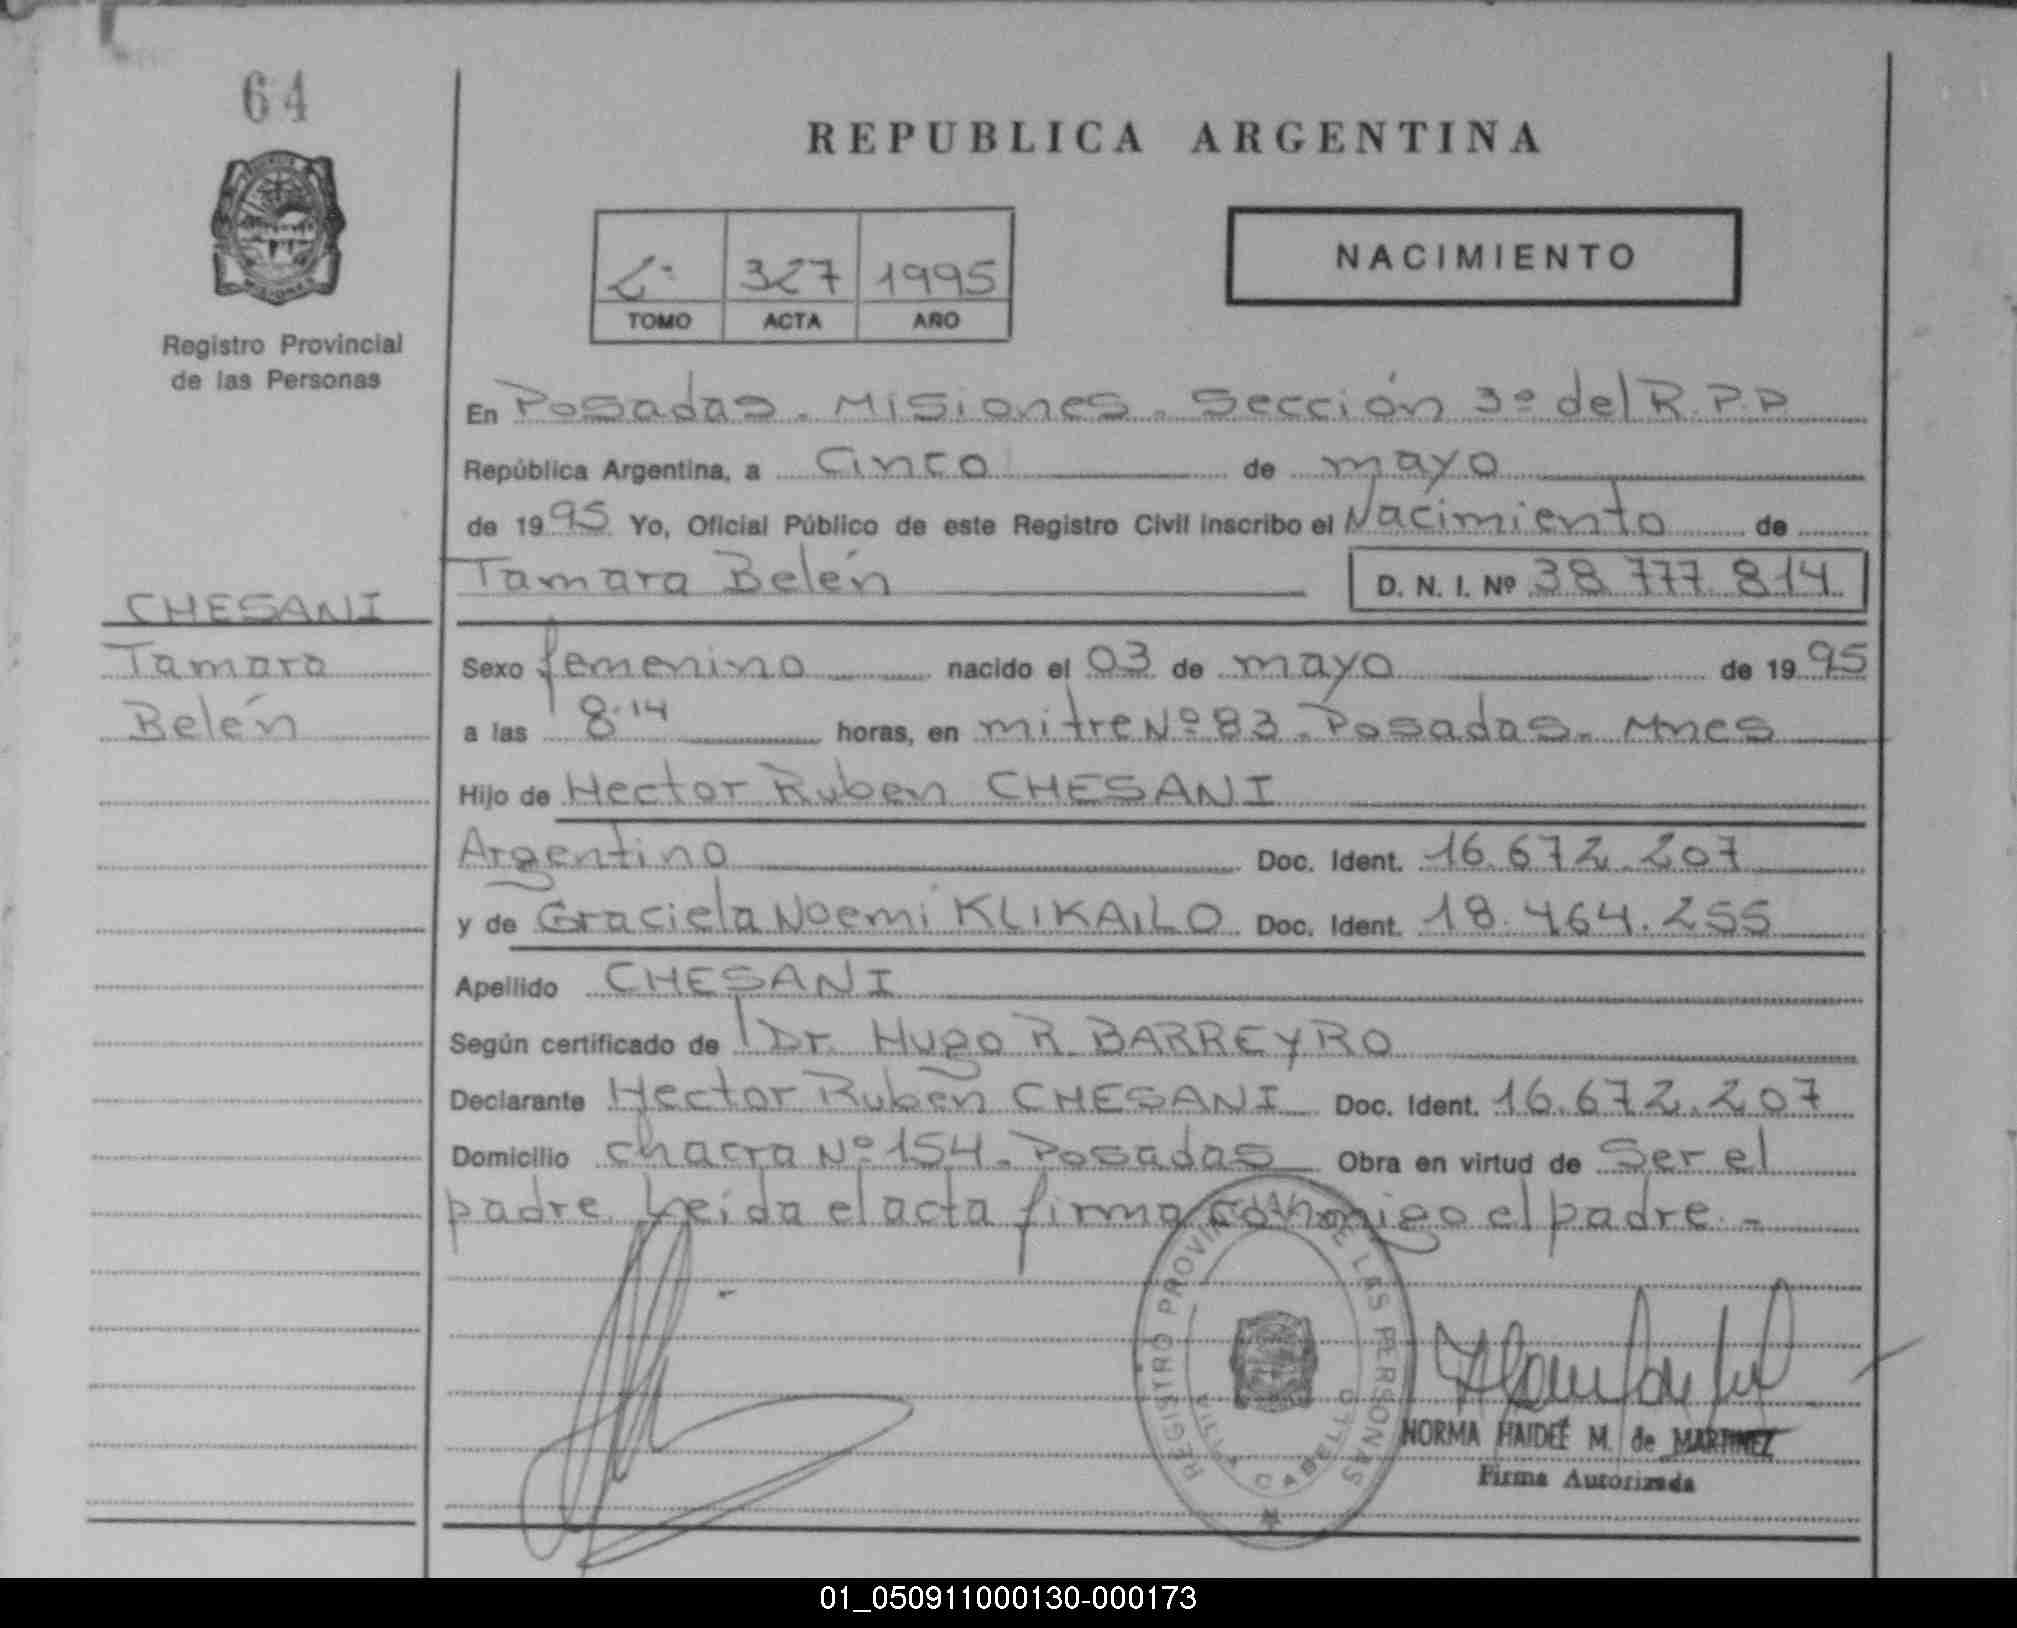 64
REPUBLICA ARGENTINA
NACIMIENTO
2º 327 1995
TOMO ACTA AÑO
Registro Provincial
de las Personas
En Posadas. Misiones. Sección 3º del R.P.P
República Argentina, a Cinco de mayo
de 1995 Yo, Oficial Público de este Registro Civil inscribo el Nacimiento de
Tamara Belén D. N. I. Nº 38.777.814
CHESANI
Tamara
Belén
Sexo femenino nacido el 03 de mayo de 1995
a las 8.14 horas, en mitre Nº 83. Posadas. Mnes
Hijo de Hector Ruben CHESANI
Argentino Doc. Ident. 16.672.207
y de Graciela Noemí KLIKAILO Doc. Ident. 18.464.255
Apellido CHESANI
Según certificado de Dr. Hugo R. BARREYRO
Declarante Hector Rubén CHESANI Doc. Ident. 16.672.207
Domicilio chacra Nº 154. Posadas Obra en virtud de Ser el
padre. Leída el acta firma conmigo el padre. -
REGISTRO PROVINCIAL DE LAS PERSONAS
VILLA CABELLO
NORMA HAIDEÉ M. de MARTINEZ
Firma Autorizada
01_050911000130-000173